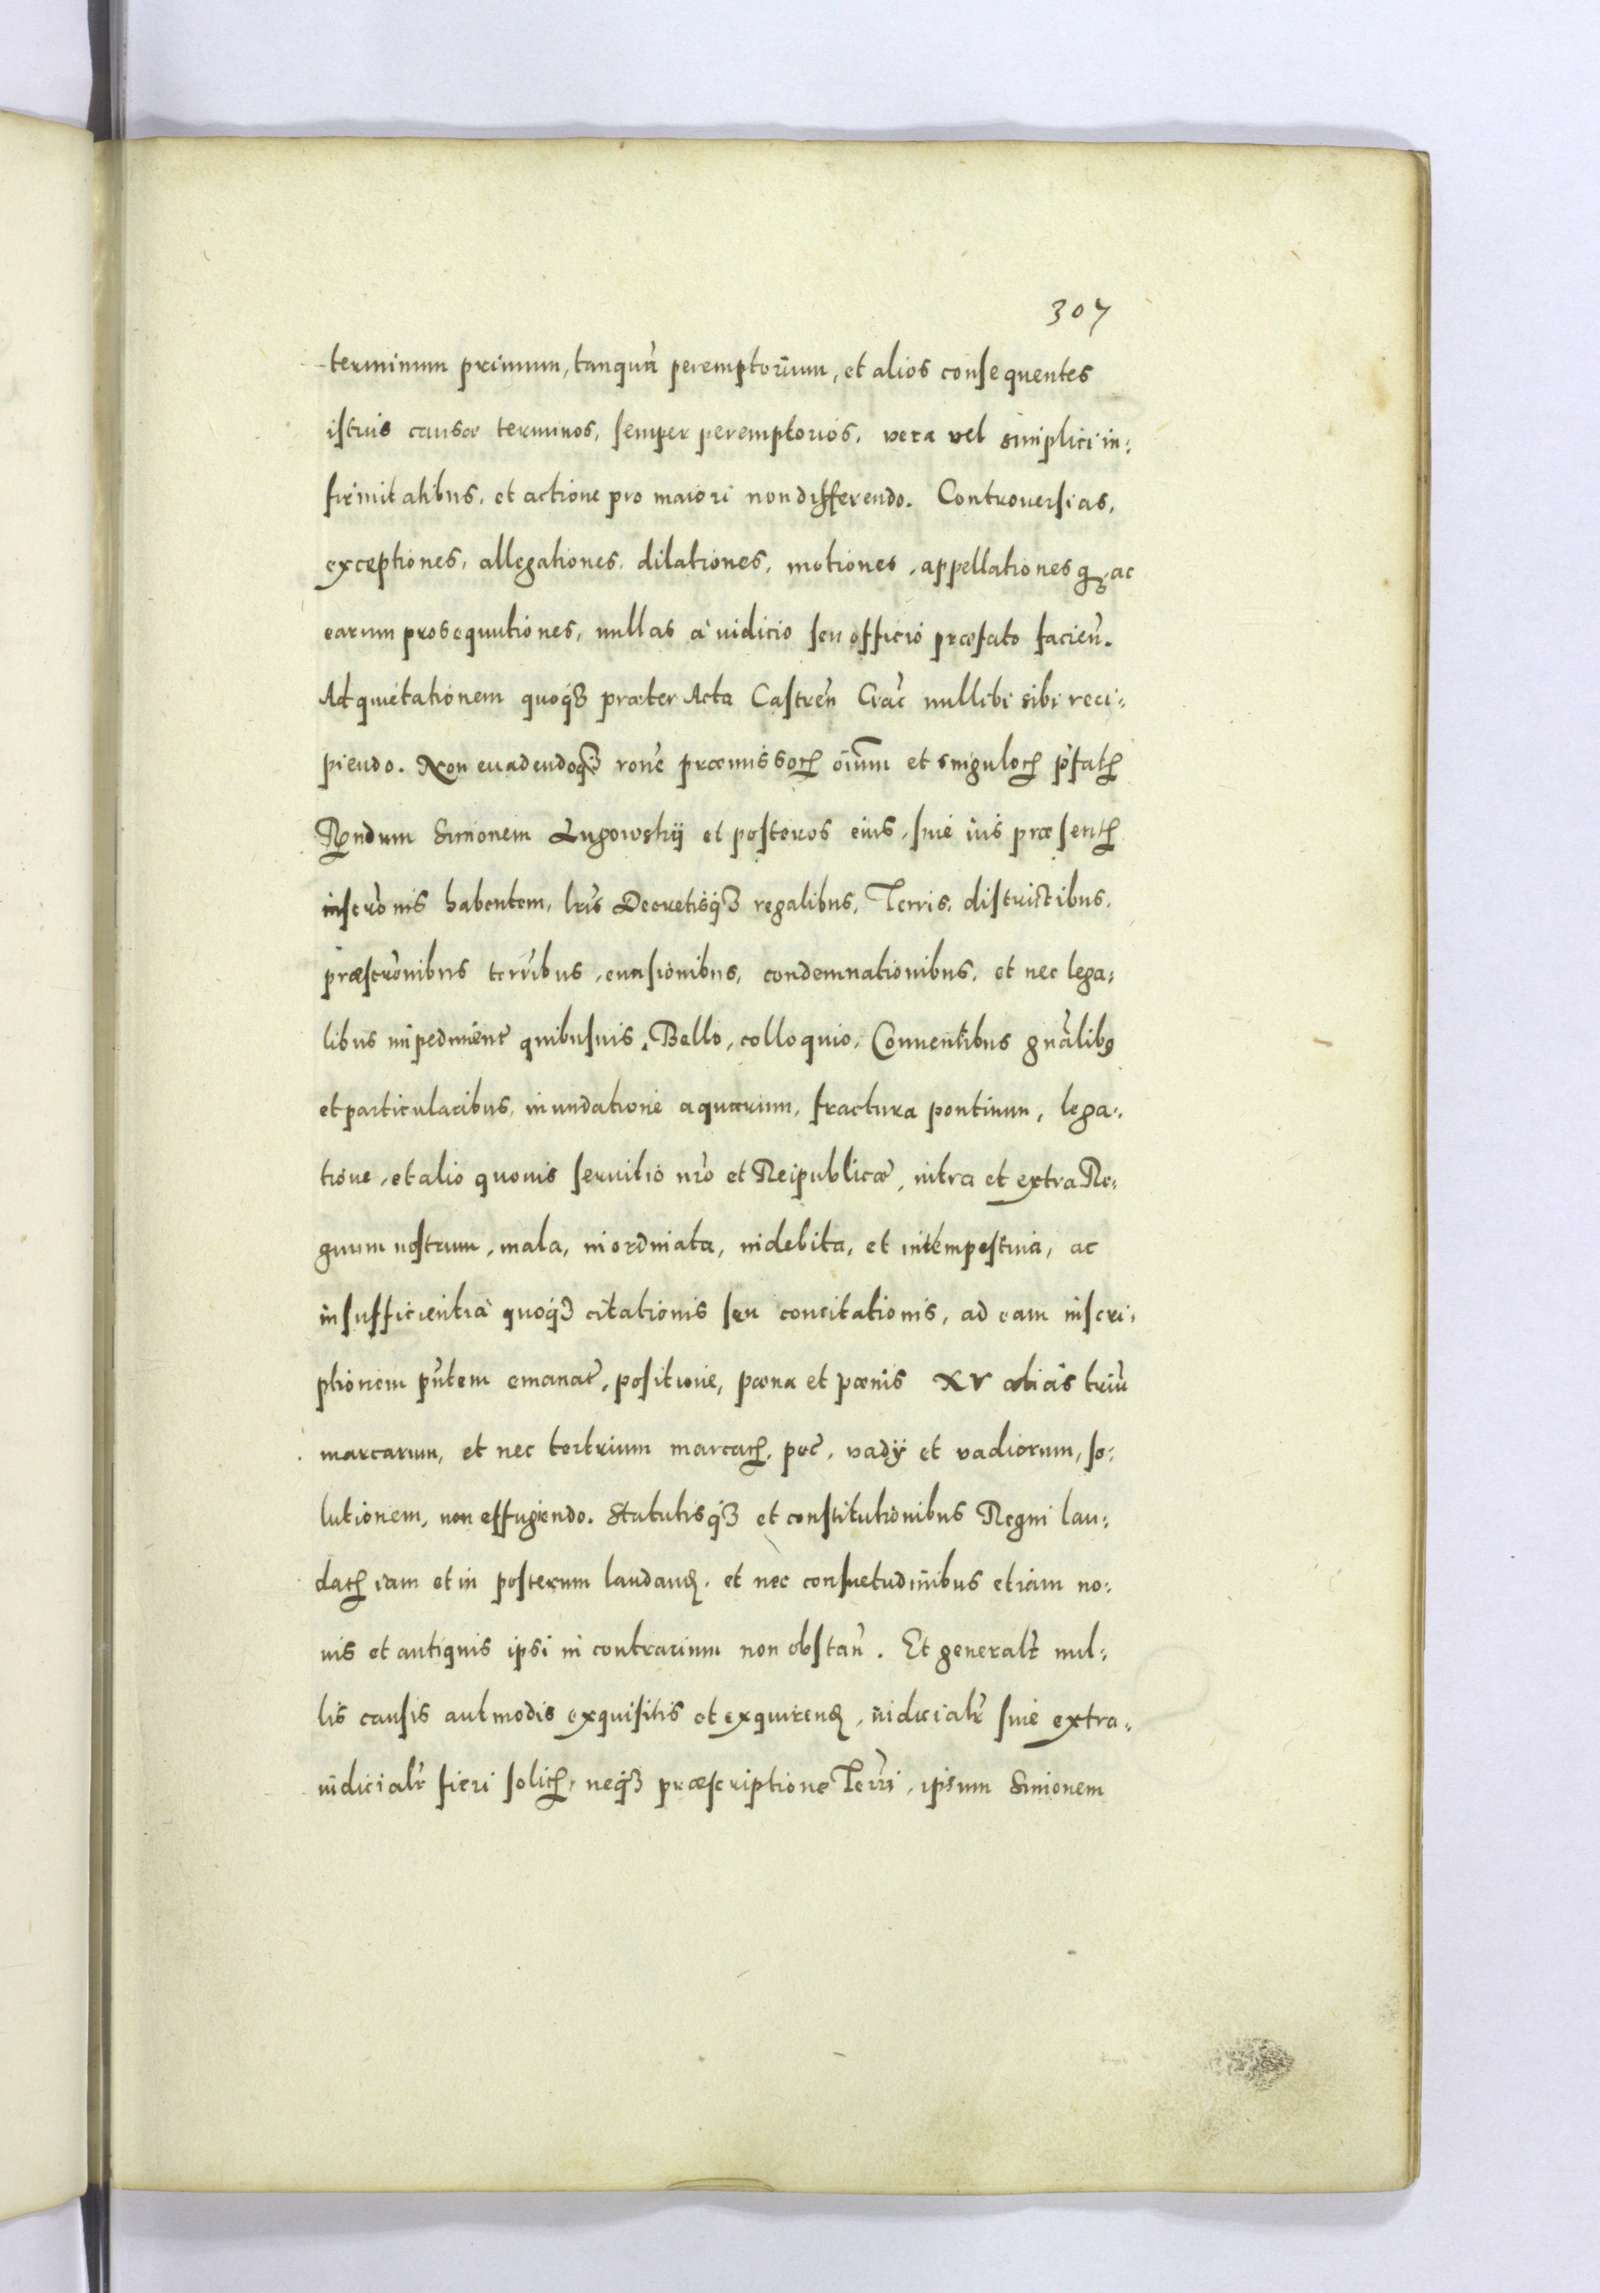 307
terminum primum, tanquā peremptorium, et alios consequentes
istius causæ terminos, semper peremptorios, vera vel simplici in:
firmitatibus, et actione pro maiori non differendo. Controuersias,
exceptiones, allegationes, dilationes, motiones, appellationesq₃, ac
earum prosequutiones, nullas à iudicio seu officio præfato facieñ.
Adquietationem quoq₃ præter Acta Castreñ Crac̃ nullibi sibi reci:
piendo. Non euadendoq₃ rone præmissoꝝ oium et singuloꝝ pfatꝝ
Rndum Simonem Lugowskij et posteros eius, siue ius præsentꝝ
inscronis habentem, lris Decretisq₃ regalibus, Terris, districtibus,
præscronibus terribus, euasionibus, condemnationibus, et nec lega:
libus impediment̃ quibusuis, Bello, colloquio, Conuentibus gnalibꝰ
et particularibus, inundatione aquarum, fractura pontium, lega:
tione, et alio quouis seruitio nro et Reipublicæ, intra et extra Re:
gnum nostrum, mala, inordinata, indebita, et intempestiua, ac
insufficientia quoq₃ citationis seu concitationis, ad eam inscri:
ptionem pntem emanat̃, positione, pæna et pænis XV alias triū
marcarum, et nec tertrium marcaꝝ, pec̃, vadÿ et vadiorum, so:
lutionem, non effugiendo. Statutisq₃ et constitutionibus Regni lau:
datꝝ iam et in posterum laudandꝝ, et nec consuetudinibus etiam no:
uis et antiquis ipsi in contrarium non obstañ. Et generalr̃ nul:
lis causis aut modis exquisitis et exquirendꝝ, iudicialr̃ siue extra:
iudicialr̃ fieri solitꝝ, neq₃ præscriptione Terri, ipsum Simonem